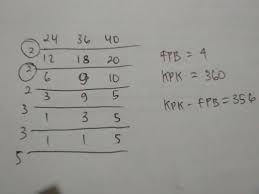 24 36 40
2 12 18 20
2 6 9 10
2 3 9 5
3 1 3 5
3 1 1 5
5
FPB = 4
KPK = 360
KPK - FPB = 356